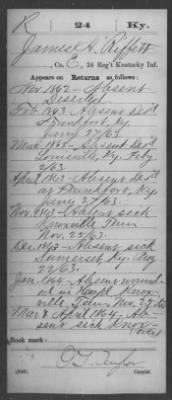 R | 24 | Ky.
James A. Riffett
Co. E, 24 Reg't Kentucky Inf.
Appears on Returns as follows:
Nov. 1862 - Absent
Deserted
Feb. 1863. Absent Des'd
at Frankfort, Ky.
Jany 27/63.
Mar. 1863 - Absent Des'd
Louisville, Ky. Feby
2/63.
April 1863 - Absent Des'd
at Frankfort, Ky.
Jany 27/63.
Nov. 1863 - Absent sick
Knoxville Tenn.
Nov. 22/63.
Dec. 1863 - Absent, sick
Somerset, Ky. Aug
22/63.
Jan. 1864 - Absent
in Hosp'l Knox-
ville, Tenn. Nov. 22/63
Mar & April 1864 - Ab-
sent sick Knox-
ville
Book mark:
Copyist.